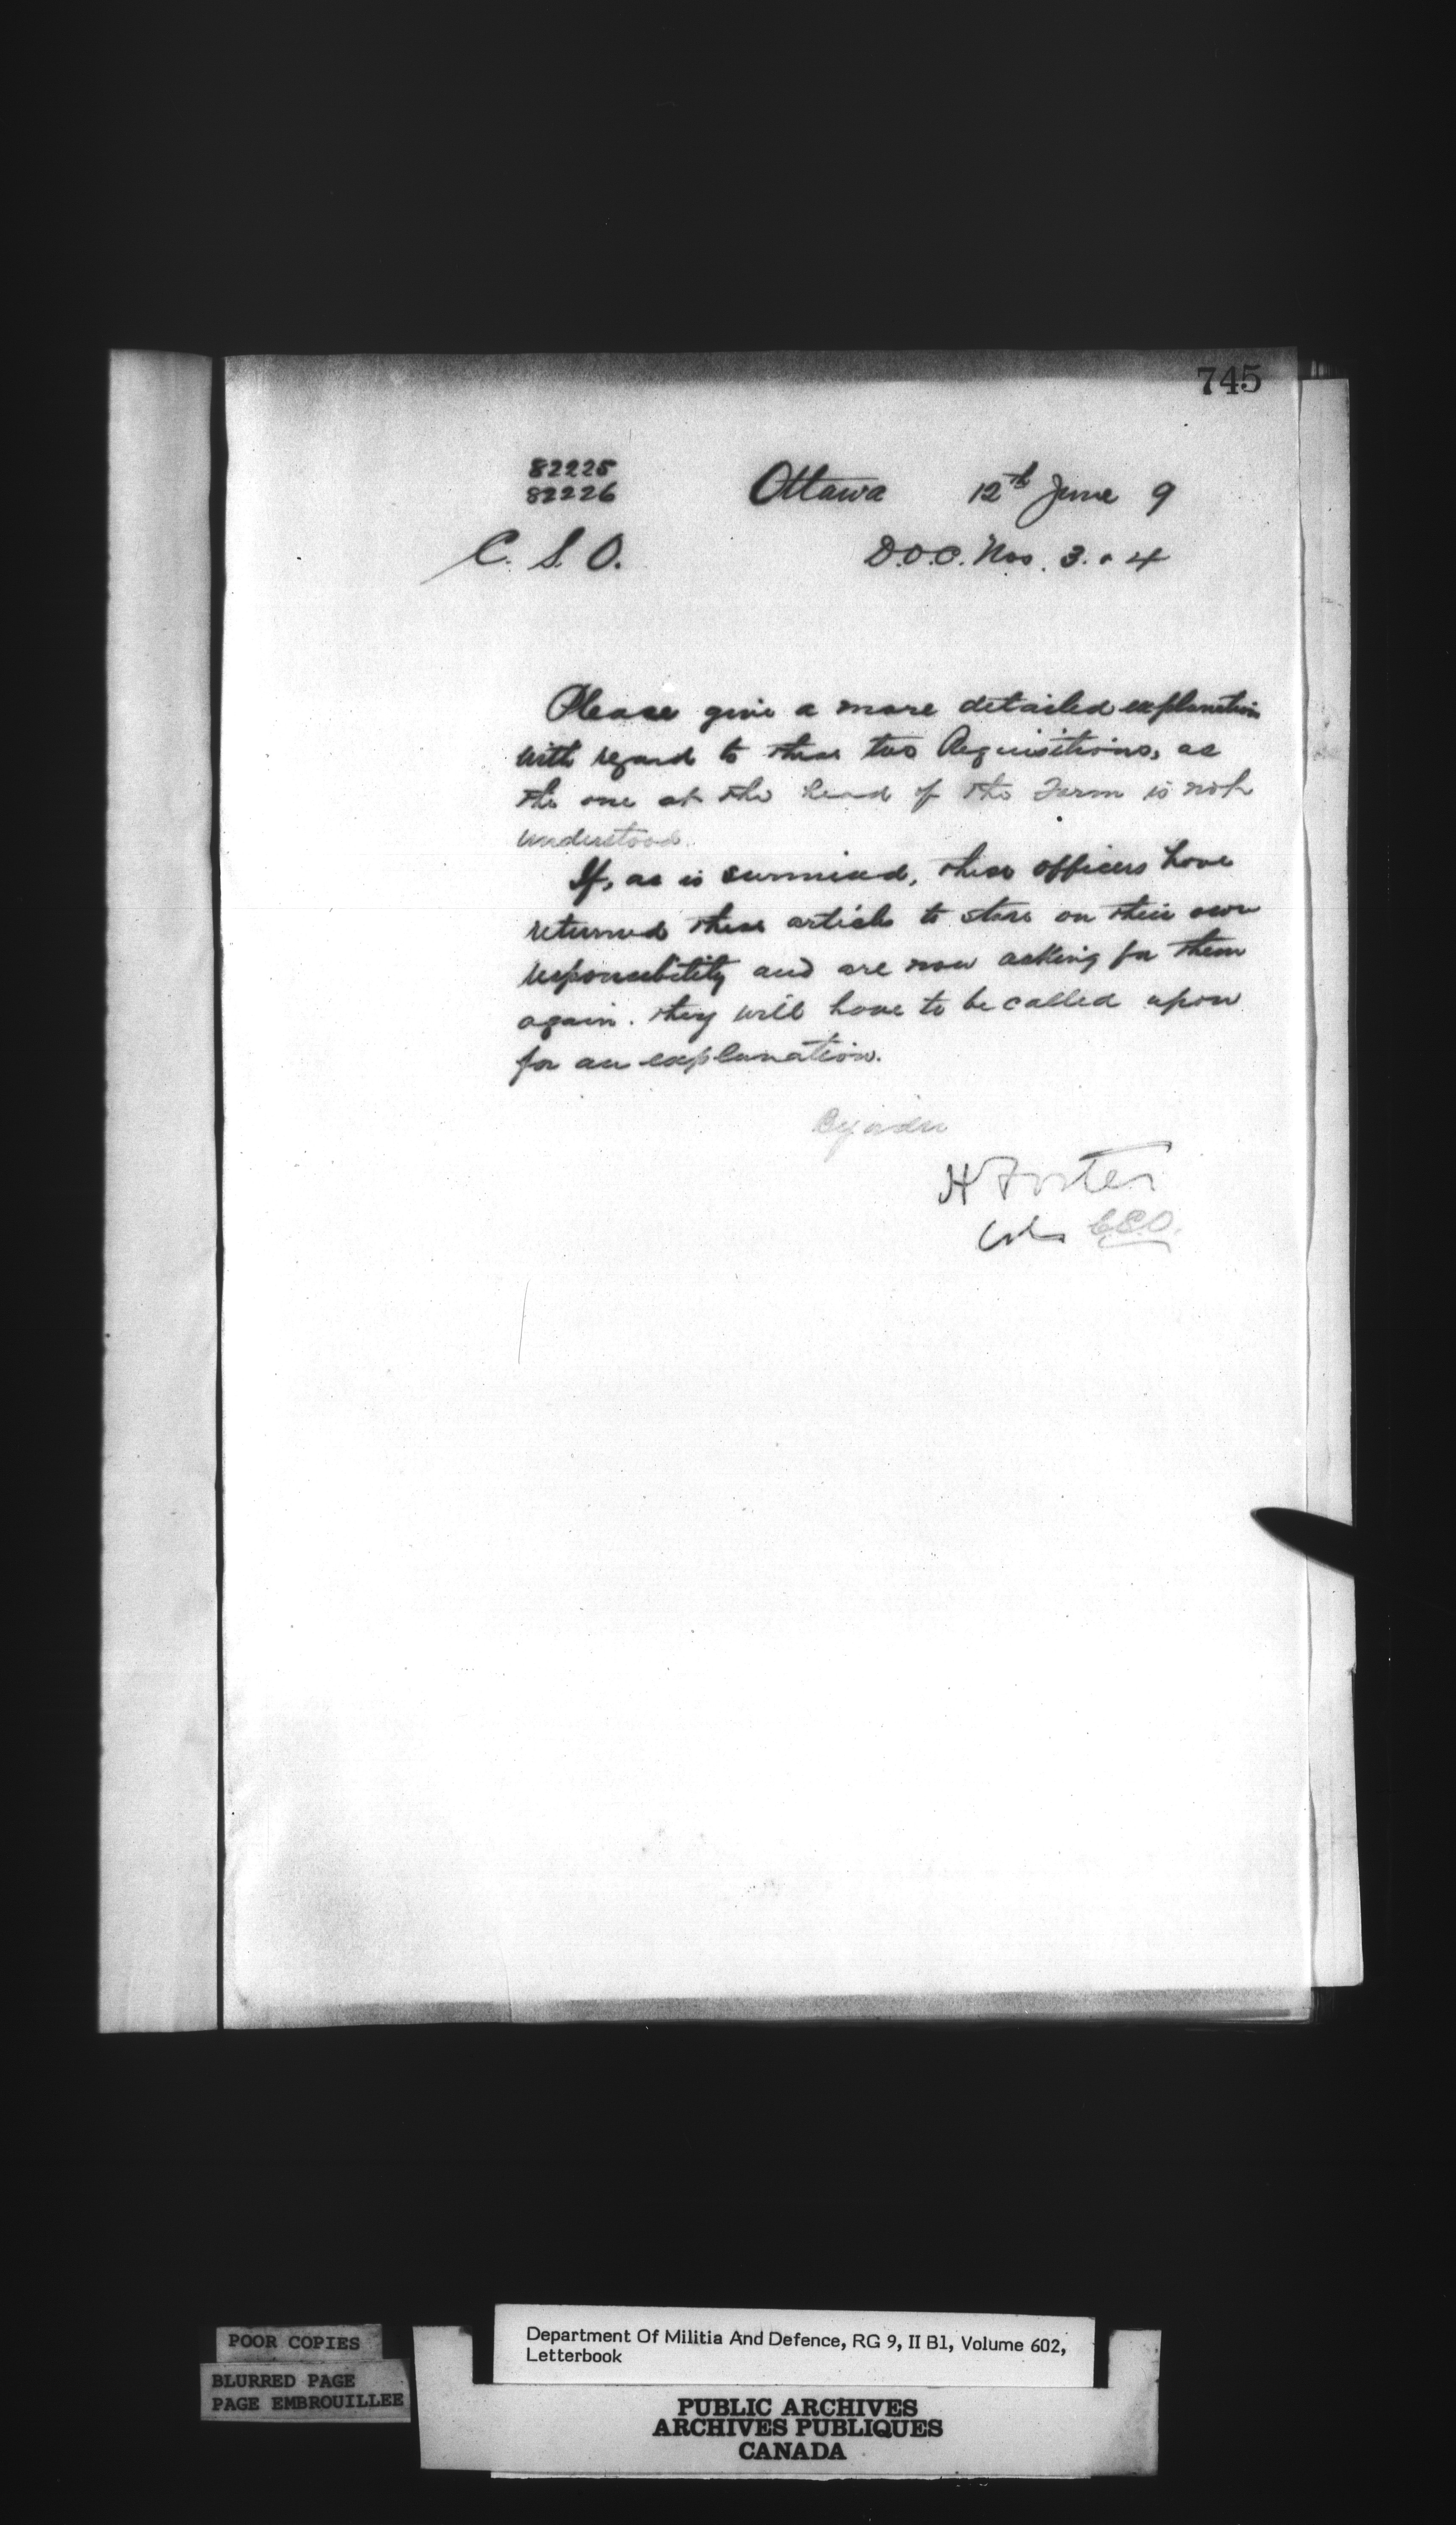 745
82225
82226
Ottawa 12th June 9
C. S. O.
D.O.C. Nos. 3. & 4
Please give a more detailed explanation
with regard to these two Requisitions, as
the one at the head of the Form is not
understood.
If, as is surmised, these officers have
returned these articles to store on their own
responsibility and are now asking for them
again. they will have to be called upon
for an explanation.
By order
H Foster
Col.
POOR COPIES
BLURRED PAGE
PAGE EMBROUILLEE
Department Of Militia And Defence, RG 9, II B1, Volume 602,
Letterbook
PUBLIC ARCHIVES
ARCHIVES PUBLIQUES
CANADA